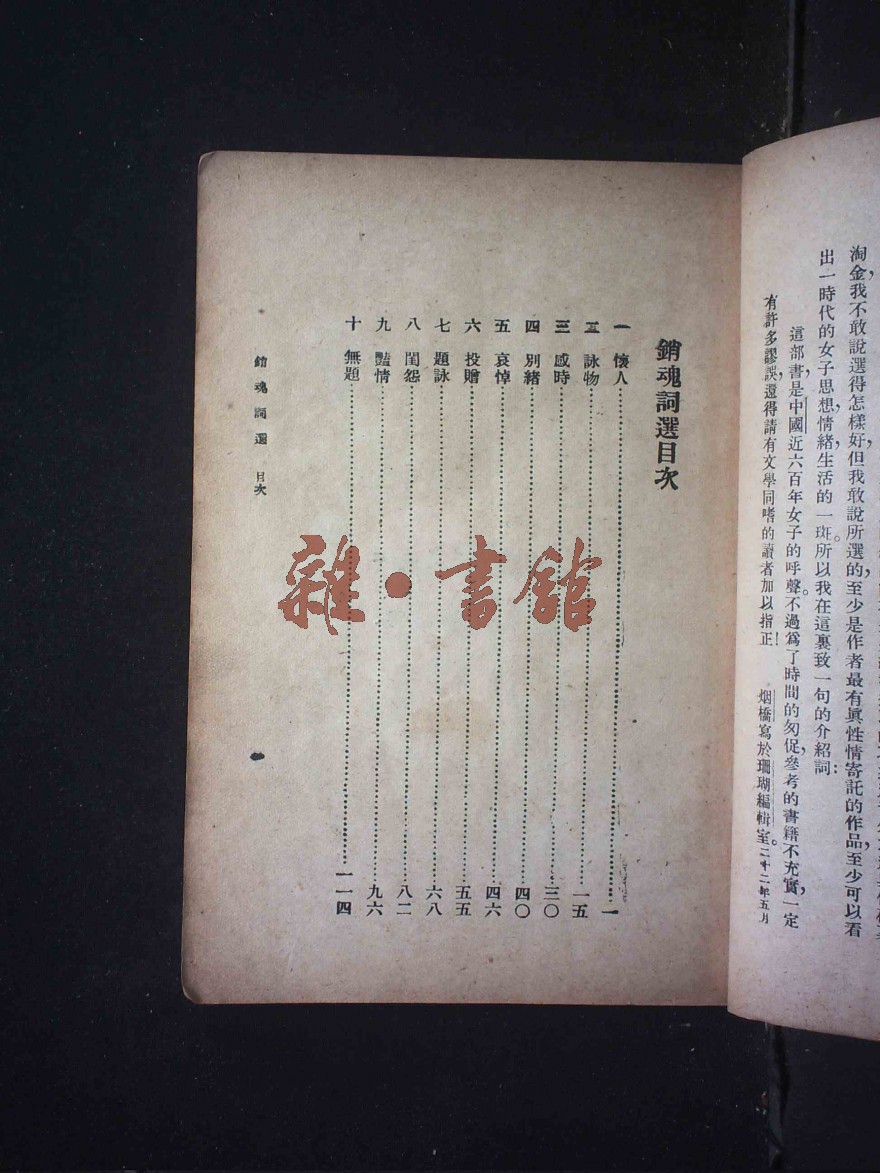 淘金，我不敢說選得怎樣好，但我敢說所選的，至少是作者最有眞性情寄託的作品，至少可以看
出一時代的女子思想，情緒生活的一斑。所以我在這裏致一句的介紹詞：
這部書，是中國近六百年女子的呼聲。不過爲了時間的匆促，參考的書籍不充實，一定
有許多謬誤，還得請有文學同嗜的讀者加以指正！
烟橋寫於珊瑚編輯室。二十二年五月
銷魂詞選目次
一 懷人…………一
二 詠物…………一五
三 感時…………三〇
四 別緒…………四〇
五 哀悼…………四六
六 投贈…………五五
七 題詠…………六八
八 閨怨…………八二
九 豔情…………九六
十 無題…………一一四
銷魂詞選 目次
雜·書館